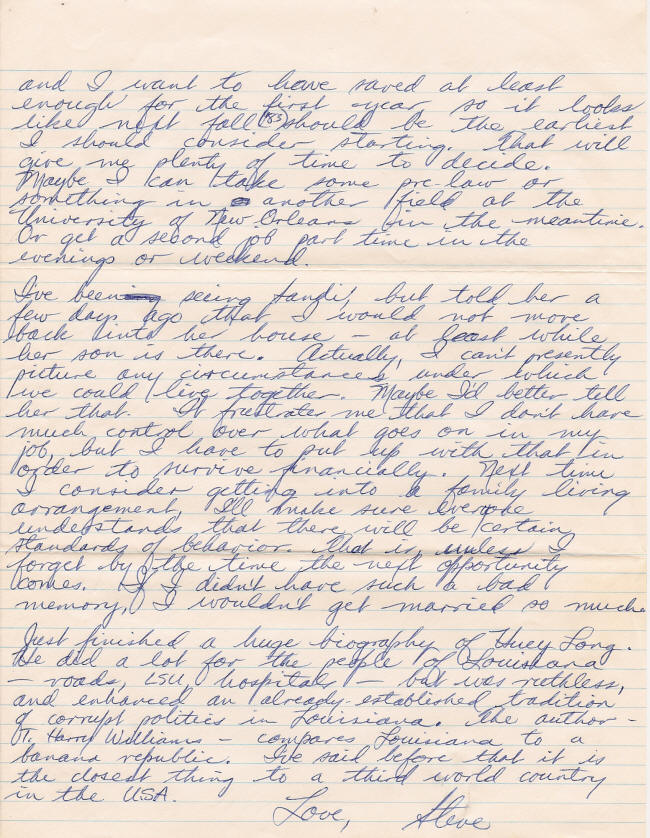 and I want to have saved at least
enough for the first year so it looks
like next fall ('83) should be the earliest
I should consider starting. That will
give me plenty of time to decide.
Maybe I can take some pre-law or
something in another field at the
University of New Orleans in the meantime.
Or get a second job part time in the
evenings or weekend.
I've been seeing Sandi, but told her a
few days ago that I would not move
back into her house – at least while
her son is there. Actually, I can't presently
picture any circumstances under which
we could live together. Maybe I'd better tell
her that. It frustrates me that I don't have
much control over what goes on in my
job, but I have to put up with that in
order to survive financially. Next time
I consider getting into a family living
arrangement, I'll make sure everyone
understands that there will be certain
standards of behavior. That is, unless I
forget by the time the next opportunity
comes. If I didn't have such a bad
memory, I wouldn't get married so much.
Just finished a huge biography of Huey Long.
He did a lot for the people of Louisiana
– roads, LSU, hospitals – but was ruthless,
and enhanced an already-established tradition
of corrupt politics in Louisiana. The author –
T. Harry Williams – compares Louisiana to a
banana republic. I've said before that it is
the closest thing to a third world country
in the USA.
Love, Steve